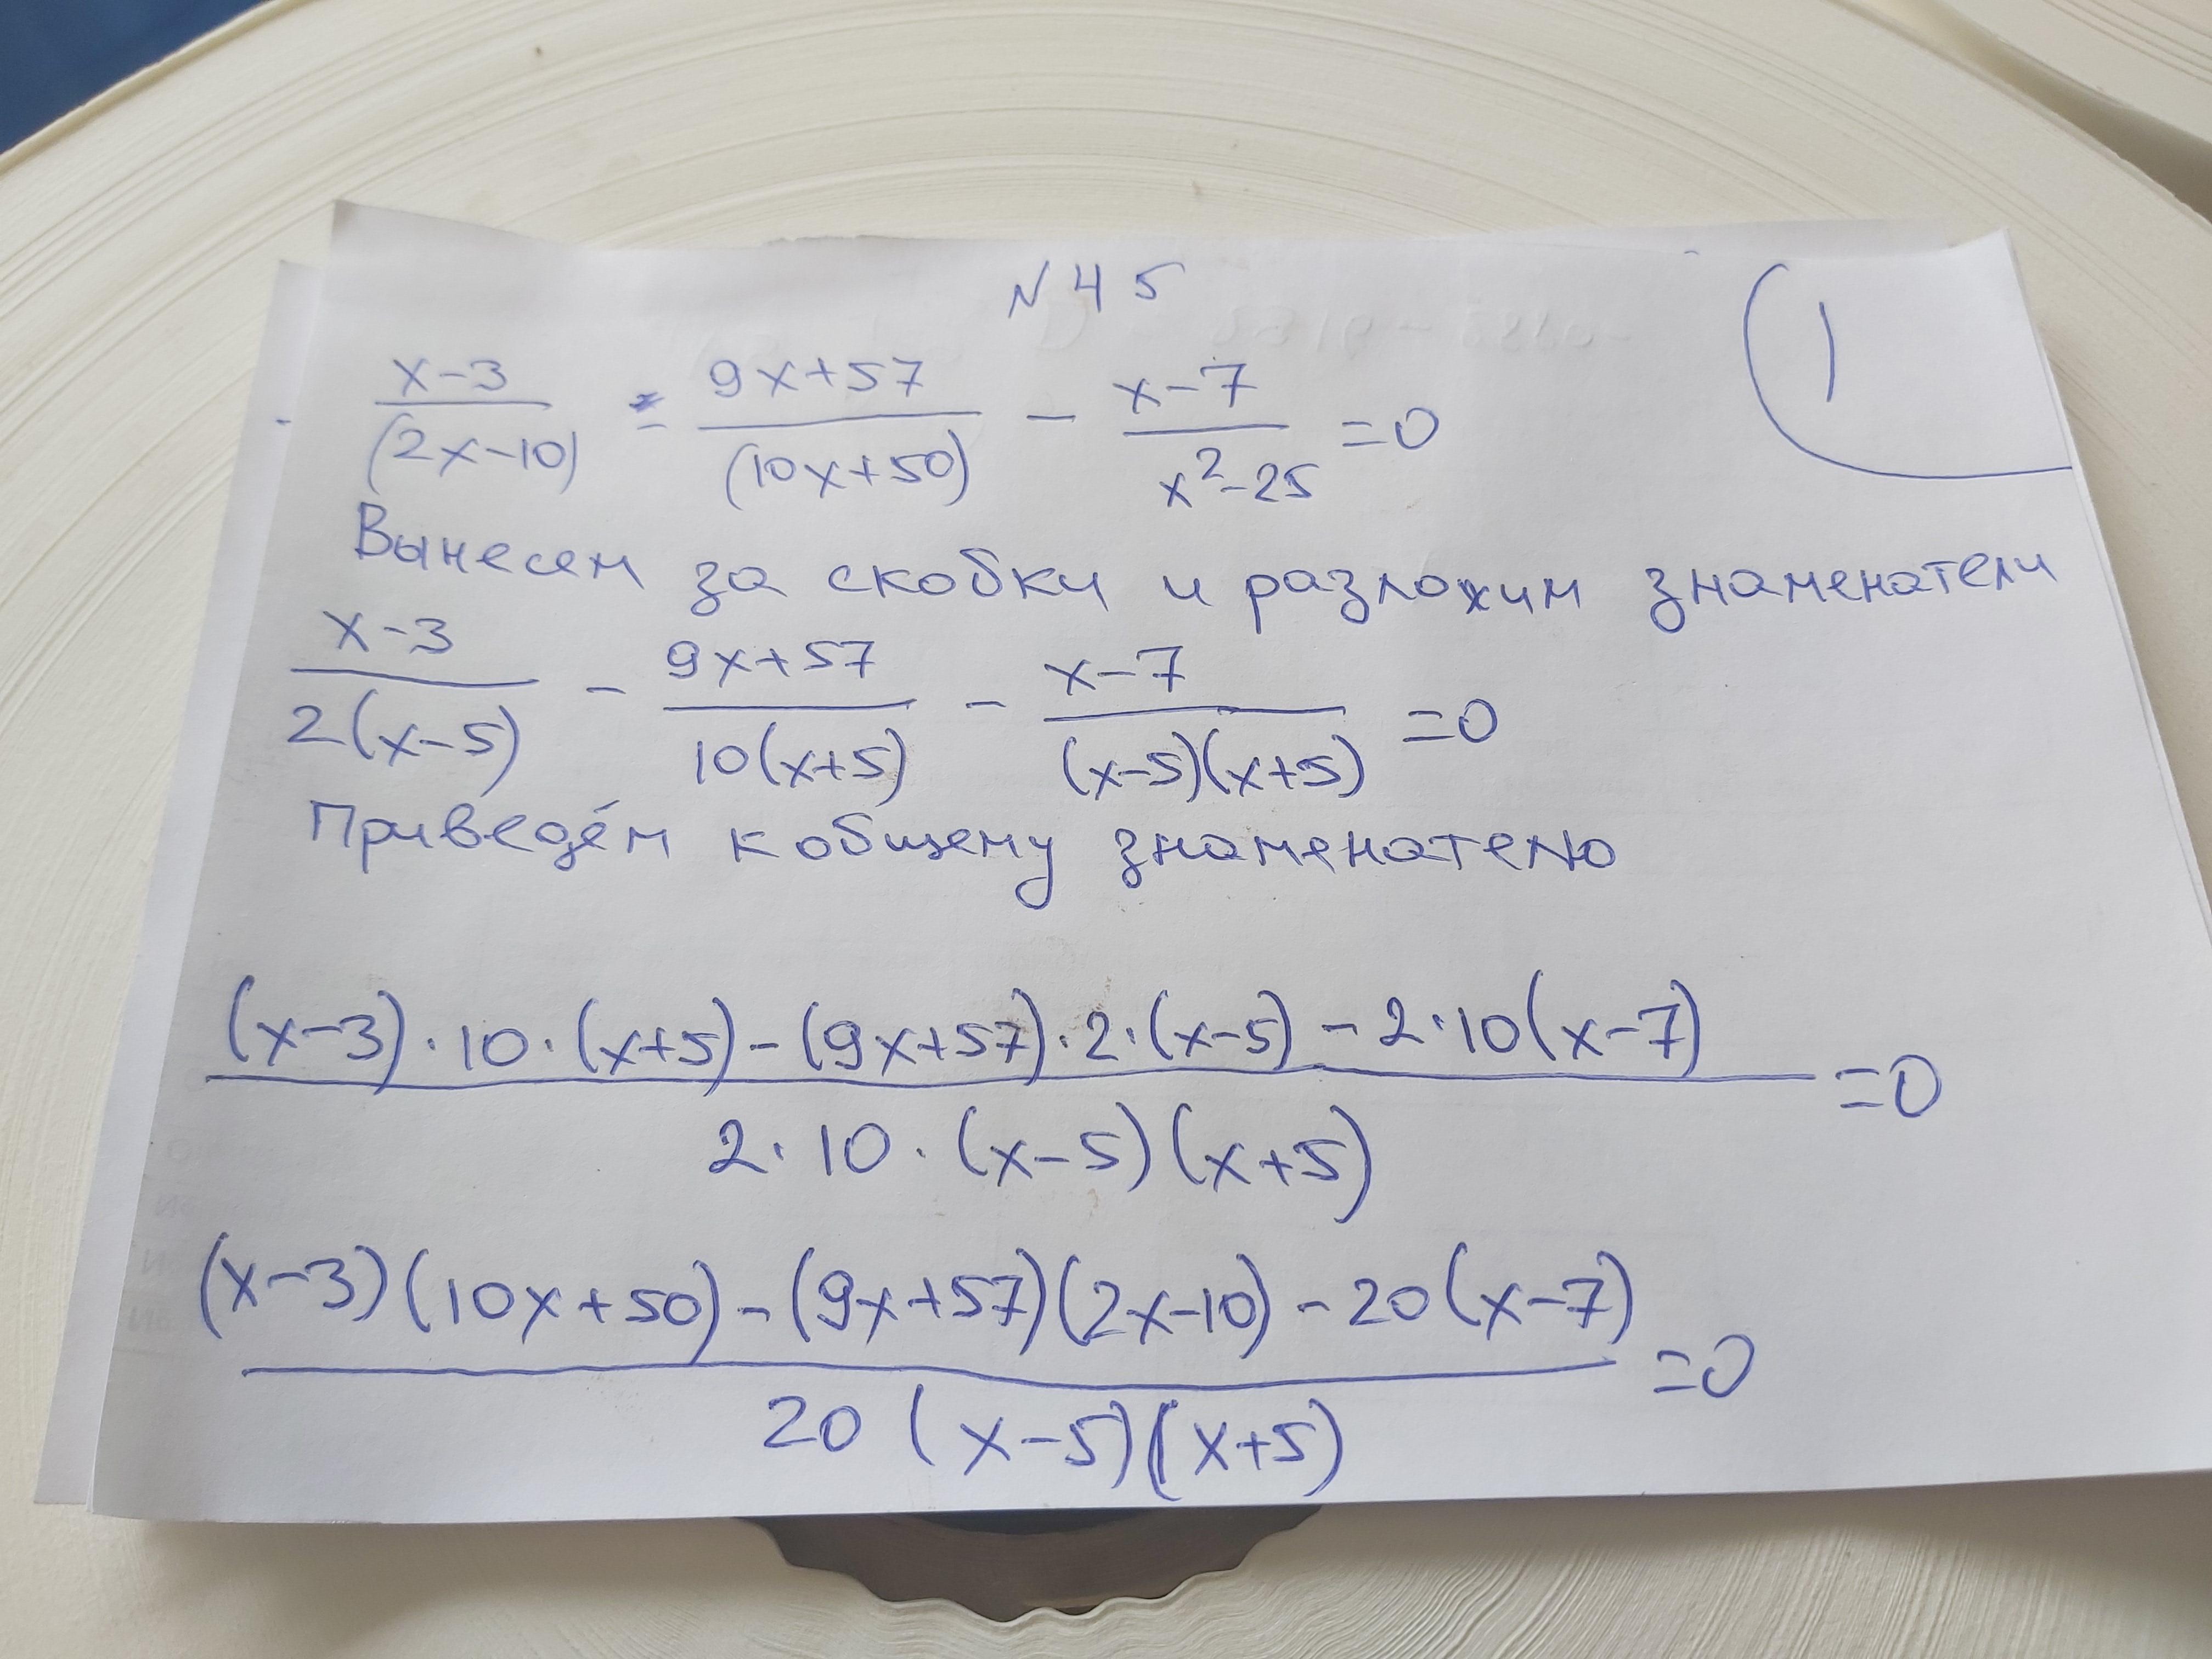 N 45
1
x-3/(2x-10) = 9x+57/(10x+50) - x-7/x²-25 =0
Вынесем за скобки и разложим знаменатели
x-3/2(x-5) - 9x+57/10(x+5) - x-7/(x-5)(x+5) =0
Приведём к общему знаменателю
(x-3)·10·(x+5)-(9x+57)·2·(x-5)-2·10(x-7)/2·10·(x-5)(x+5) =0
(x-3)(10x+50)-(9x+57)(2x-10)-20(x-7)/20(x-5)(x+5) =0